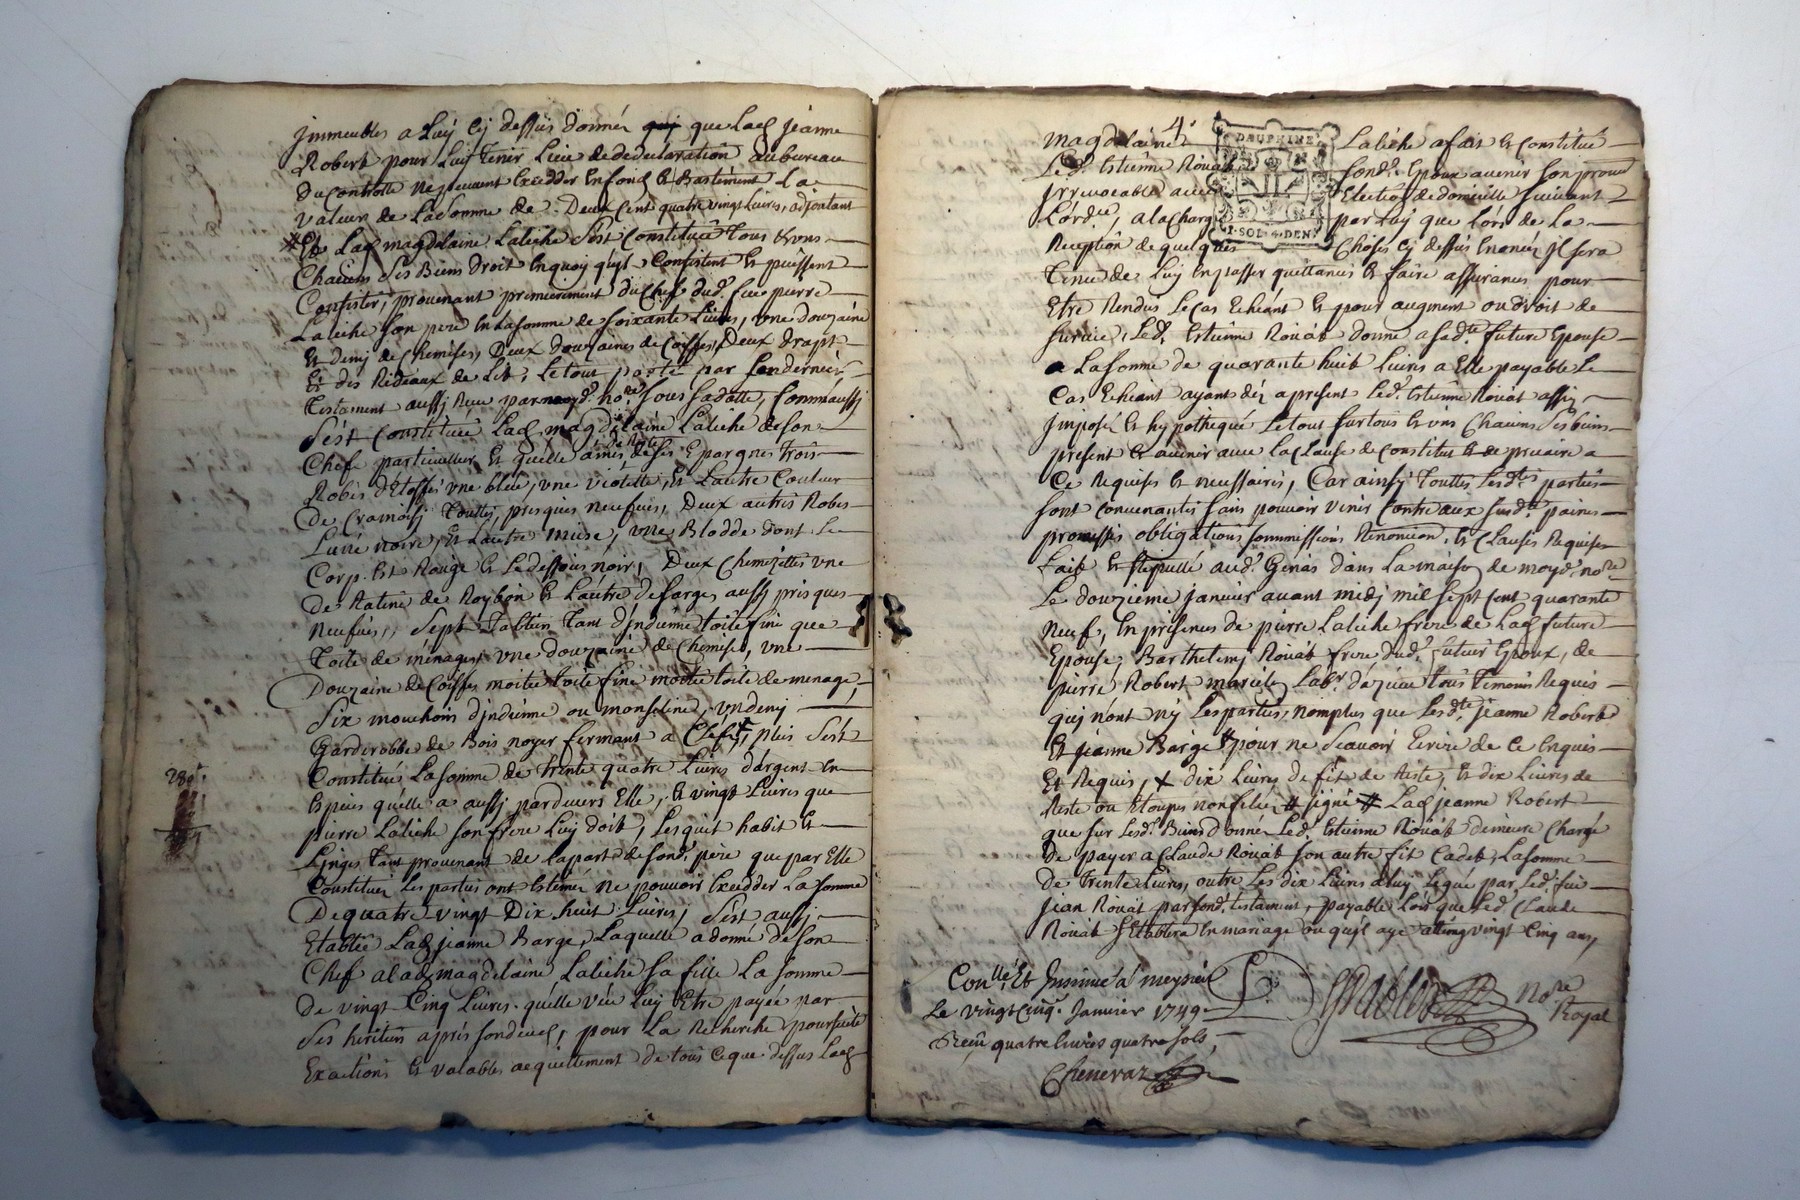 jmmeubles a Luy cy dessus donnés que Lad jeanne
Robert pour Luy Tenir Lieu de declaration au bureau
du Controlle ne peuvent Excedder en fond et Bastiment La
valeur de La somme de Deux Cent quatre vingt Livres, adjoutant
# Et Lad magdelaine Laliche s'est Constituée tous & uns
Chacuns Ses Biens Droit en quoy qu'yl Consistent et puissent
Consister, provenant premierement du Chef dud. feu pierre
Laliche son pere en La somme de soixante Livres, une douzaine
Et demy de Chemises, Deux douzaines de Coiffes, Deux drapt
Et des Rideaux de Lit, Le tout porté par son dernier
Testament aussy Receu par moyd. no.re sous sa datte, Comme aussy
s'est Constituée Lad magdelaine Laliche de son
Chef particullier et quelle a mis de Reste de ses Epargnes Trois
Robes d'Etoffes une bleue, une violette, et L'autre Couleur
De Cramoisy Touttes presques neufves, Deux autres Robes
L'une noire, et L'autre muse, une Blodde dont Le
Corp. Est Rouge et Le dessous noir, Deux Chemizettes une
De Ratine de Roybon et L'autre de sarge aussy presques
Neufves, Sept Tabliers Tant d'jndienne toile fine que
Toile de ménage, une douzaine de Chemises, une
Douzaine de Coiffes moitié toile fine moitié toile de menage,
Six mouchoirs d'jndienne ou monseline, un demy
Garderobbe de Bois noyer fermant a Clef, plus s'est
280#
Constitué La somme de trente quatre Livres d'argent en
Especes qu'elle a aussy pardevers Elle, Et vingt Livres que
pierre Laliche son frere Luy doit, Lesquels habit et
Linges Tant provenant de La part de sond. pere que par Elle
Constituez Les parties ont Estimé ne pouvoir Excedder La somme
De quatre vingt Dix huit Livres, s'est aussy
Etablie Lad jeanne Barge, Laquelle a donné de son
Chef a Lad magdelaine Laliche sa fille La somme
De vingt Cinq Livres qu'elle veu Luy Etre payée par
Ses heritiers aprés son deces, pour La Recherche poursuite
Exactions et valables acquittement de tous ce que dessus Lad
magdelaine 4. Laliche a fait et Constitué
DAUPHINE
Led. Estienne Rouat sond. Epoux avenir son procur
jrrevocable avec Election de domicille suivant
L'ord.ce, a la Charge par Luy que Lors de La
2. SOLS. 4. DEN
Reception de quelques Choses cy dessus Enoncez Jl sera
Tenu de Luy en passer quittances et faire assurances pour
Etre Rendus Le Cas Echéant et pour augment ou droit de
survie, Led. Estienne Rouat donne a sad.te future Epouse
a La somme de quarante huit Livres a Elle payable Le
Cas Echéant ayant déz a present Led. Estienne Rouat assis
jmposé et hypothequé Le tout sur tous et uns Chacuns ses biens
present et avenir avec La Clause de Constitut et de precaire a
Ce Requises et necessaires, Car ainsy Touttes Lesd.tes parties
sont Convenantes sans pouvoir venir Contre aux susd.tes paines
promesses obligations soummissions Renonciaon. et Clauses Requises
Fait et stipullé aud. Genas dans La maison de moyd. no.re
Le douzieme janvier avant midy mil sept cent quarante
Neuf, En presences de pierre Laliche frere de Lad future
Epouse, Barthelemy Rouat frere dud. futur Epoux, de
pierre Robert Lab.r tous Temoins Requis
quj n'ont ny Les parties, nomplus que Lesd.te jeanne Robert
Et jeanne Barge pour ne scavoir Ecrire de ce Enquis
Et Requis, X dix Livres de fit de Riste, Et dix Livres de
Riste ou Etoupes non filée # signé # Lad jeanne Robert
que sur Lesd. Biens donnés Led. Estienne Rouat demeure Chargé
De payer a Claude Rouat son autre fit Cadet, La somme
De Trente Livres, outre Les dix Livres a Luy Legué par Led. feu
jean Rouat par sond. testament, payable Lors que Led. Claude
Rouat s'Etablira en mariage ou qu'jl aye atteint vingt Cinq ans,
Con.llé Et Jnsinué a meysieu
Le vingt cinq. Janvier 1749.
Receu quatre livres quatre sols,
Chenevaz
No.re
Royal